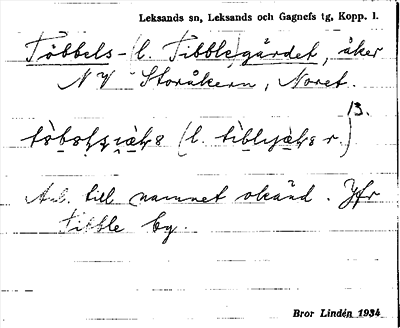 Leksands sn, Leksands och Gagnefs tg, Kopp. l.
Többels- (l. Tibble)gårdet, åker
NV Storåkern, Noret.
13.
(l.
Anl. till namnet okänd. Jfr
Tibble by.
Bror Lindén 1934